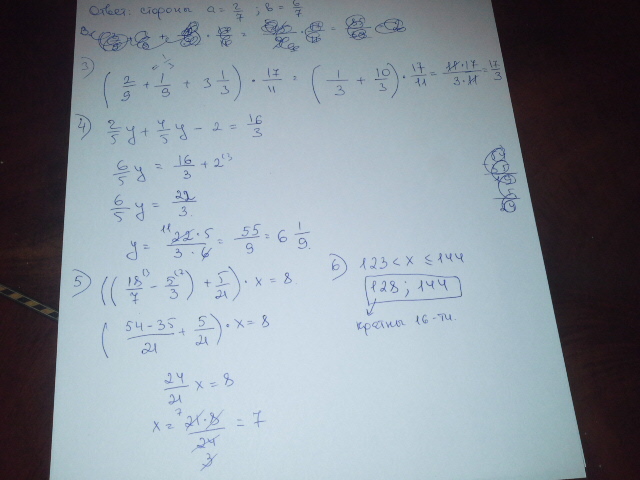 Ответ: стороны a = 2/7 ; b = 6/7
3) (2/9 + 1/9 + 3 1/3) · 17/11 = (1/3 + 10/3) · 17/11 = 11·17/3·11 = 17/3
4) 2/5 y + 4/5 y − 2 = 16/3
6/5 y = 16/3 + 2
6/5 y = 22/3
y = 22·5/3·6 = 55/9 = 6 1/9.
5) ((18/7 − 5/3) + 5/21) · x = 8
(54−35/21 + 5/21) · x = 8
24/21 x = 8
x = 21·8/24 = 7
6) 123 < x ≤ 144
128 ; 144
кратны 16-ти.